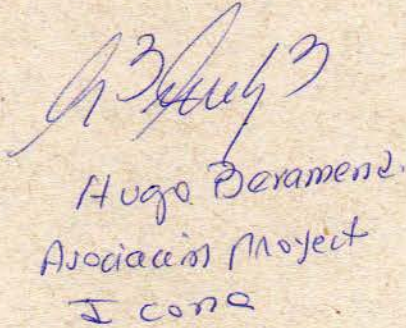 Hugo Beramend.
Asociación Proyect
Icona